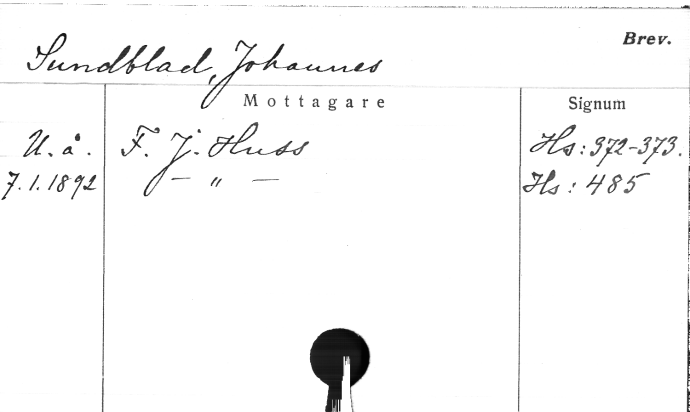 Brev.
Sundblad, Johannes
Mottagare Signum
U. å. F. J. Huss Hs: 372-373.
7.1.1892 — „ — Hs: 485